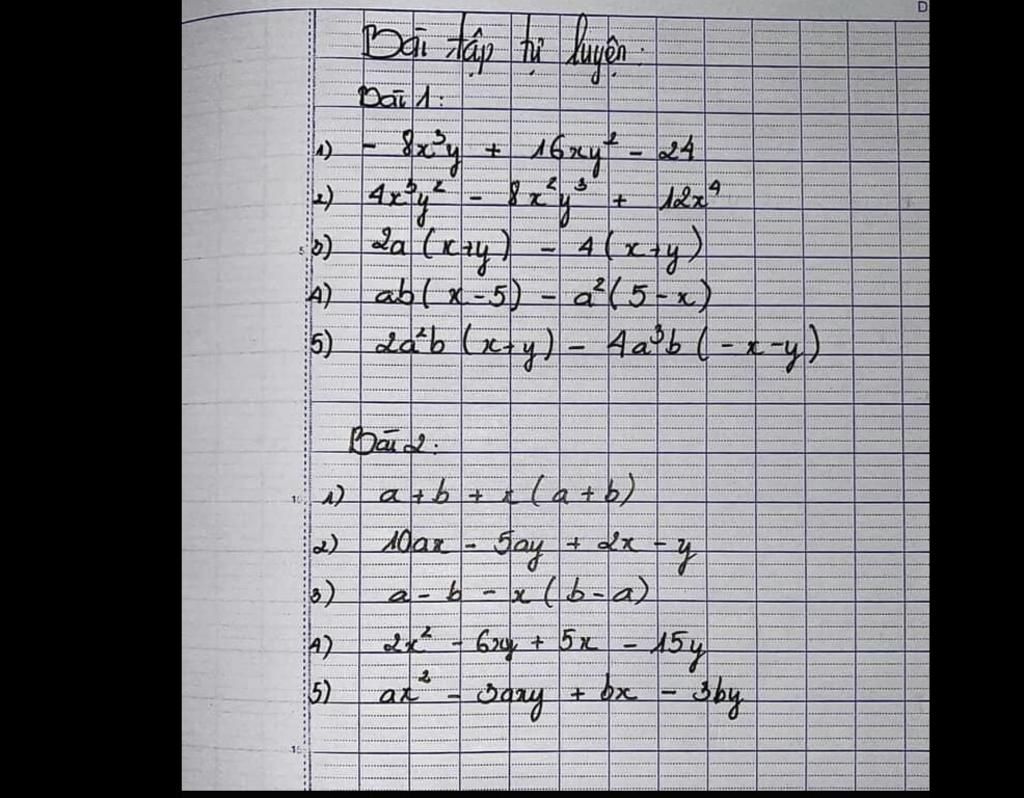 D
Bài tập tự luyện:
Bài 1:
1) - 8x³y + 16xy² - 24
2) 4x³y² - 8x²y³ + 12x⁴
3) 2a (x+y) - 4 (x+y)
4) ab(x-5) - a²(5-x)
5) 2a²b (x+y) - 4a³b (-x-y)
Bài 2:
1) a + b + x (a + b)
2) 10ax - 5ay + 2x - y
3) a - b - x (b - a)
4) 2x² - 6xy + 5x - 15y
5) ax² - 3axy + bx - 3by